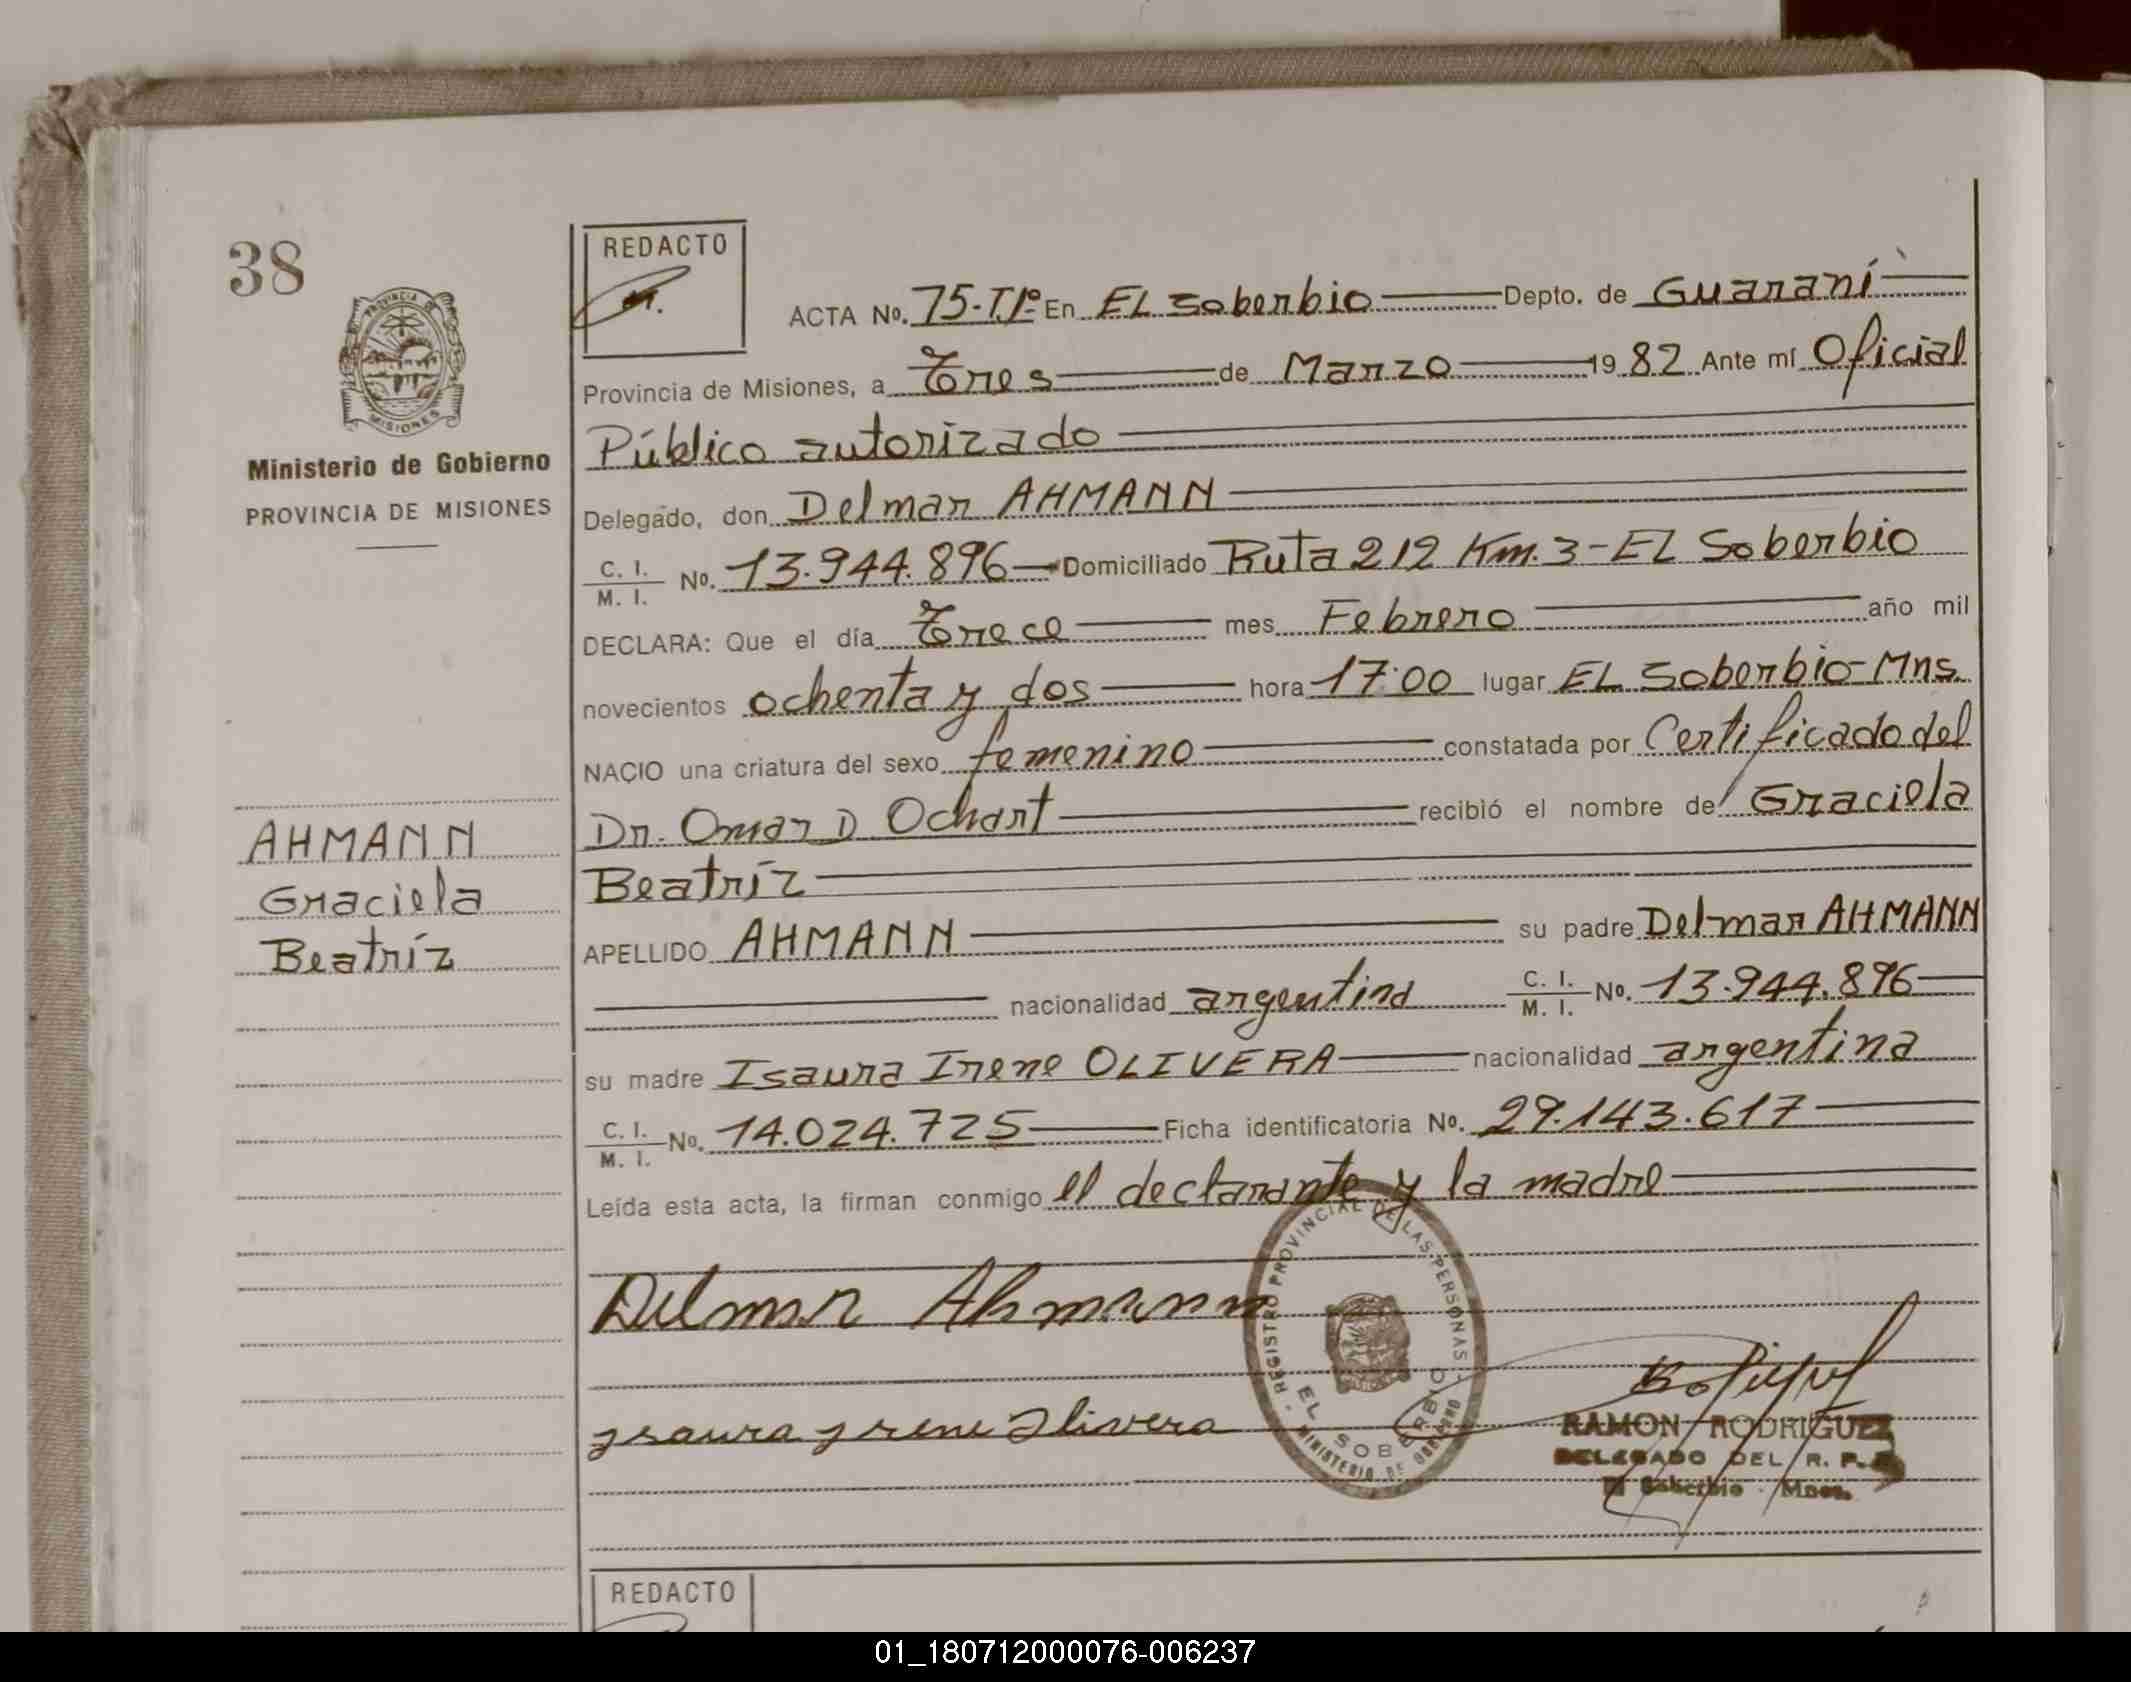 38
REDACTO
PROVINCIA DE
MISIONES
Ministerio de Gobierno
PROVINCIA DE MISIONES
ACTA No. 75-T.1º- En EL Soberbio Depto. de Guaraní
Provincia de Misiones, a Tres de Marzo 19 82 Ante mí Oficial
Público autorizado
Delegado, don Delmar AHMANN
C. I.
M. I. No. 13.944.896 Domiciliado Ruta 212 Km. 3-EL Soberbio
DECLARA: Que el día Trece mes Febrero año mil
novecientos ochenta y dos hora 17:00 lugar EL Soberbio-Mns.
NACIO una criatura del sexo femenino constatada por Certificado del
Dr. Omar D Ochart recibió el nombre de Graciela
Beatríz
APELLIDO AHMANN su padre Delmar AHMANN
nacionalidad argentina C. I. M. I. No. 13.944.896
su madre Isaura Irene OLIVERA nacionalidad argentina
C. I.
M. I. No. 14.024.725 Ficha identificatoria No. 29.143.617
Leída esta acta, la firman conmigo el declarante y la madre
AHMANN
Graciela
Beatríz
Delmar Ahmann
Isaura Irene Olivera
REGISTRO PROVINCIAL DE LAS PERSONAS
EL SOBERBIO
MINISTERIO DE GOBIERNO
RAMON RODRIGUEZ
DELEGADO DEL R. P.
El Soberbio - Mnes.
REDACTO
01_180712000076-006237